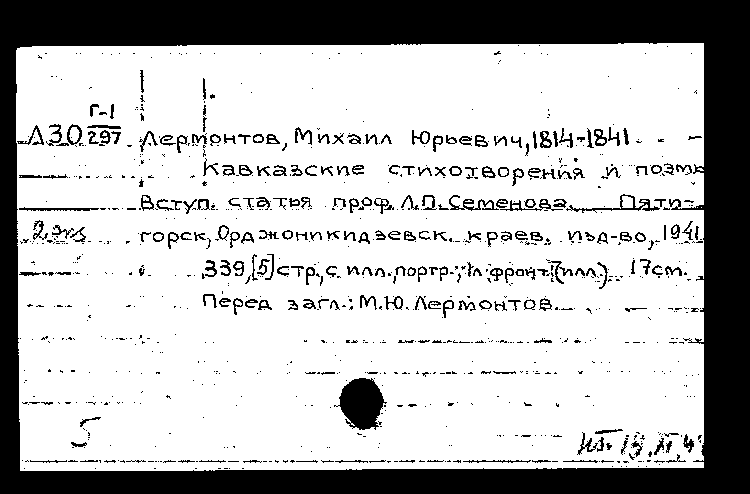 Г-1
Л30 297 Лермонтов, Михаил Юрьевич, 1814-1841
Кавказские стихотворения и поэмы
Вступ. статья проф. Л.П. Семенова. Пяти-
2 экз горск, Орджоникидзевск. краев. изд-во, 1941
339, [5] стр., с илл., портр.; 1 л. фронт. (илл.) 17см.
Перед загл.: М.Ю. Лермонтов.
5